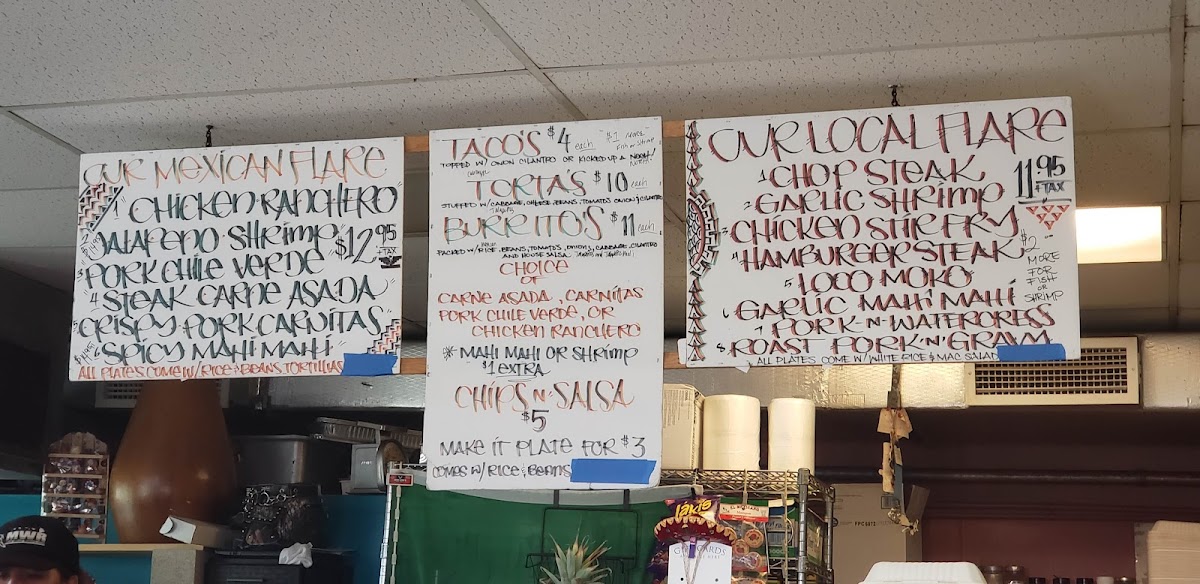 OUR MEXICAN FLARE
1 CHICKEN RANCHERO
JALAPENO SHRIMP
$12.95 + TAX
3 PORK CHILE VERDE
4 STEAK CARNE ASADA
5 CRISPY PORK CARNITAS
6 SPICY MAHI MAHI
ALL PLATES COME W/ RICE & BEANS, TORTILLAS
TACO'S $4 each
FISH or SHRIMP
TOPPED W/ ONION CILANTRO OR KICKED UP A NOTCH
TORTA'S $10 each
STUFFED W/ CABBAGE, CHEESE, BEANS, TOMATO'S ONION & CILANTRO
BURRITO'S $11 each
PACKED W/ RICE, BEANS, TOMATO'S, ONIONS, CABBAGE, CILANTRO
AND HOUSE SALSA
CHOICE
OF
CARNE ASADA, CARNITAS
PORK CHILE VERDE, OR
CHICKEN RANCHERO
* MAHI MAHI OR SHRIMP
$1 EXTRA
CHIPS N' SALSA
$5
MAKE IT PLATE FOR $3
COMES W/ RICE & BEANS
OUR LOCAL FLARE
1 CHOP STEAK
11.95 + TAX
2 GARLIC SHRIMP
3 CHICKEN STIR FRY
4 HAMBURGER STEAK
5 LOCO MOKO
6 GARLIC MAHI MAHI
7 PORK-N-WATERCRESS
8 ROAST PORK 'N' GRAVY
$2
MORE
FOR
FISH
OR
SHRIMP
ALL PLATES COME W/ WHITE RICE & MAC SALAD
MWR
Takis